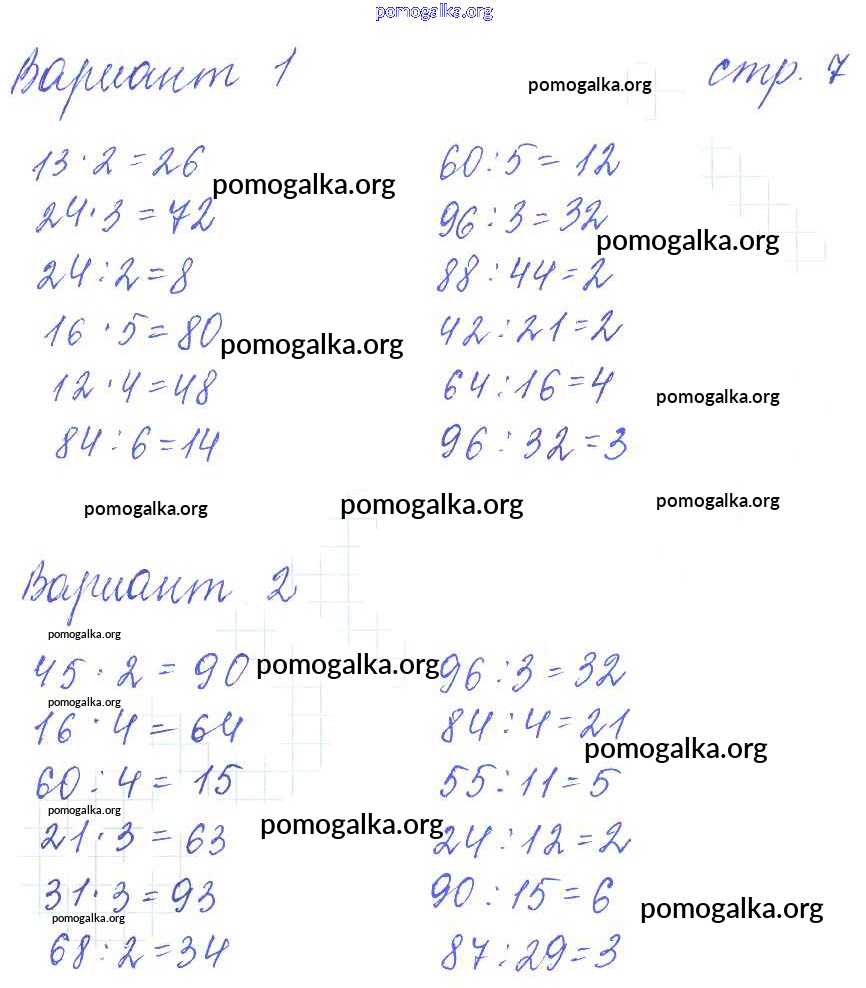 pomogalka.org
Вариант 1 pomogalka.org стр. 7
13 · 2 = 26 60 : 5 = 12
pomogalka.org
24 · 3 = 72 96 : 3 = 32
pomogalka.org
24 : 2 = 8 88 : 44 = 2
16 · 5 = 80 pomogalka.org 42 : 21 = 2
12 · 4 = 48 64 : 16 = 4 pomogalka.org
84 : 6 = 14 96 : 32 = 3
pomogalka.org pomogalka.org pomogalka.org
Вариант 2
pomogalka.org
45 · 2 = 90 pomogalka.org 96 : 3 = 32
pomogalka.org
16 · 4 = 64 84 : 4 = 21
pomogalka.org
60 : 4 = 15 55 : 11 = 5
pomogalka.org
pomogalka.org
21 · 3 = 63 24 : 12 = 2
31 · 3 = 93 90 : 15 = 6
pomogalka.org pomogalka.org
68 : 2 = 34 87 : 29 = 3